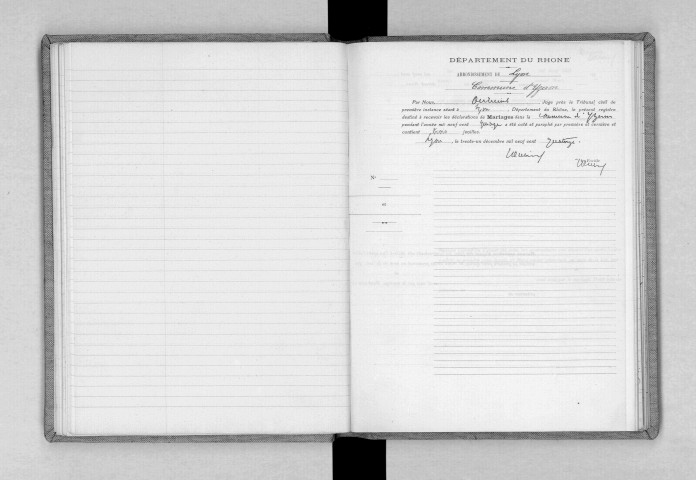 DÉPARTEMENT DU RHONE
ARRONDISSEMENT DE Lyon
Commune d'Yzeron
Par Nous, Juge près le Tribunal civil de
première instance séant à Lyon Département du Rhône, le présent registre
destiné à recevoir les déclarations de Mariages dans la Commune d'Yzeron
pendant l'année mil neuf cent quinze a été coté et paraphé par première et dernière et
contient trois feuilles.
Lyon, le trente-un décembre mil neuf cent quatorze.
N°